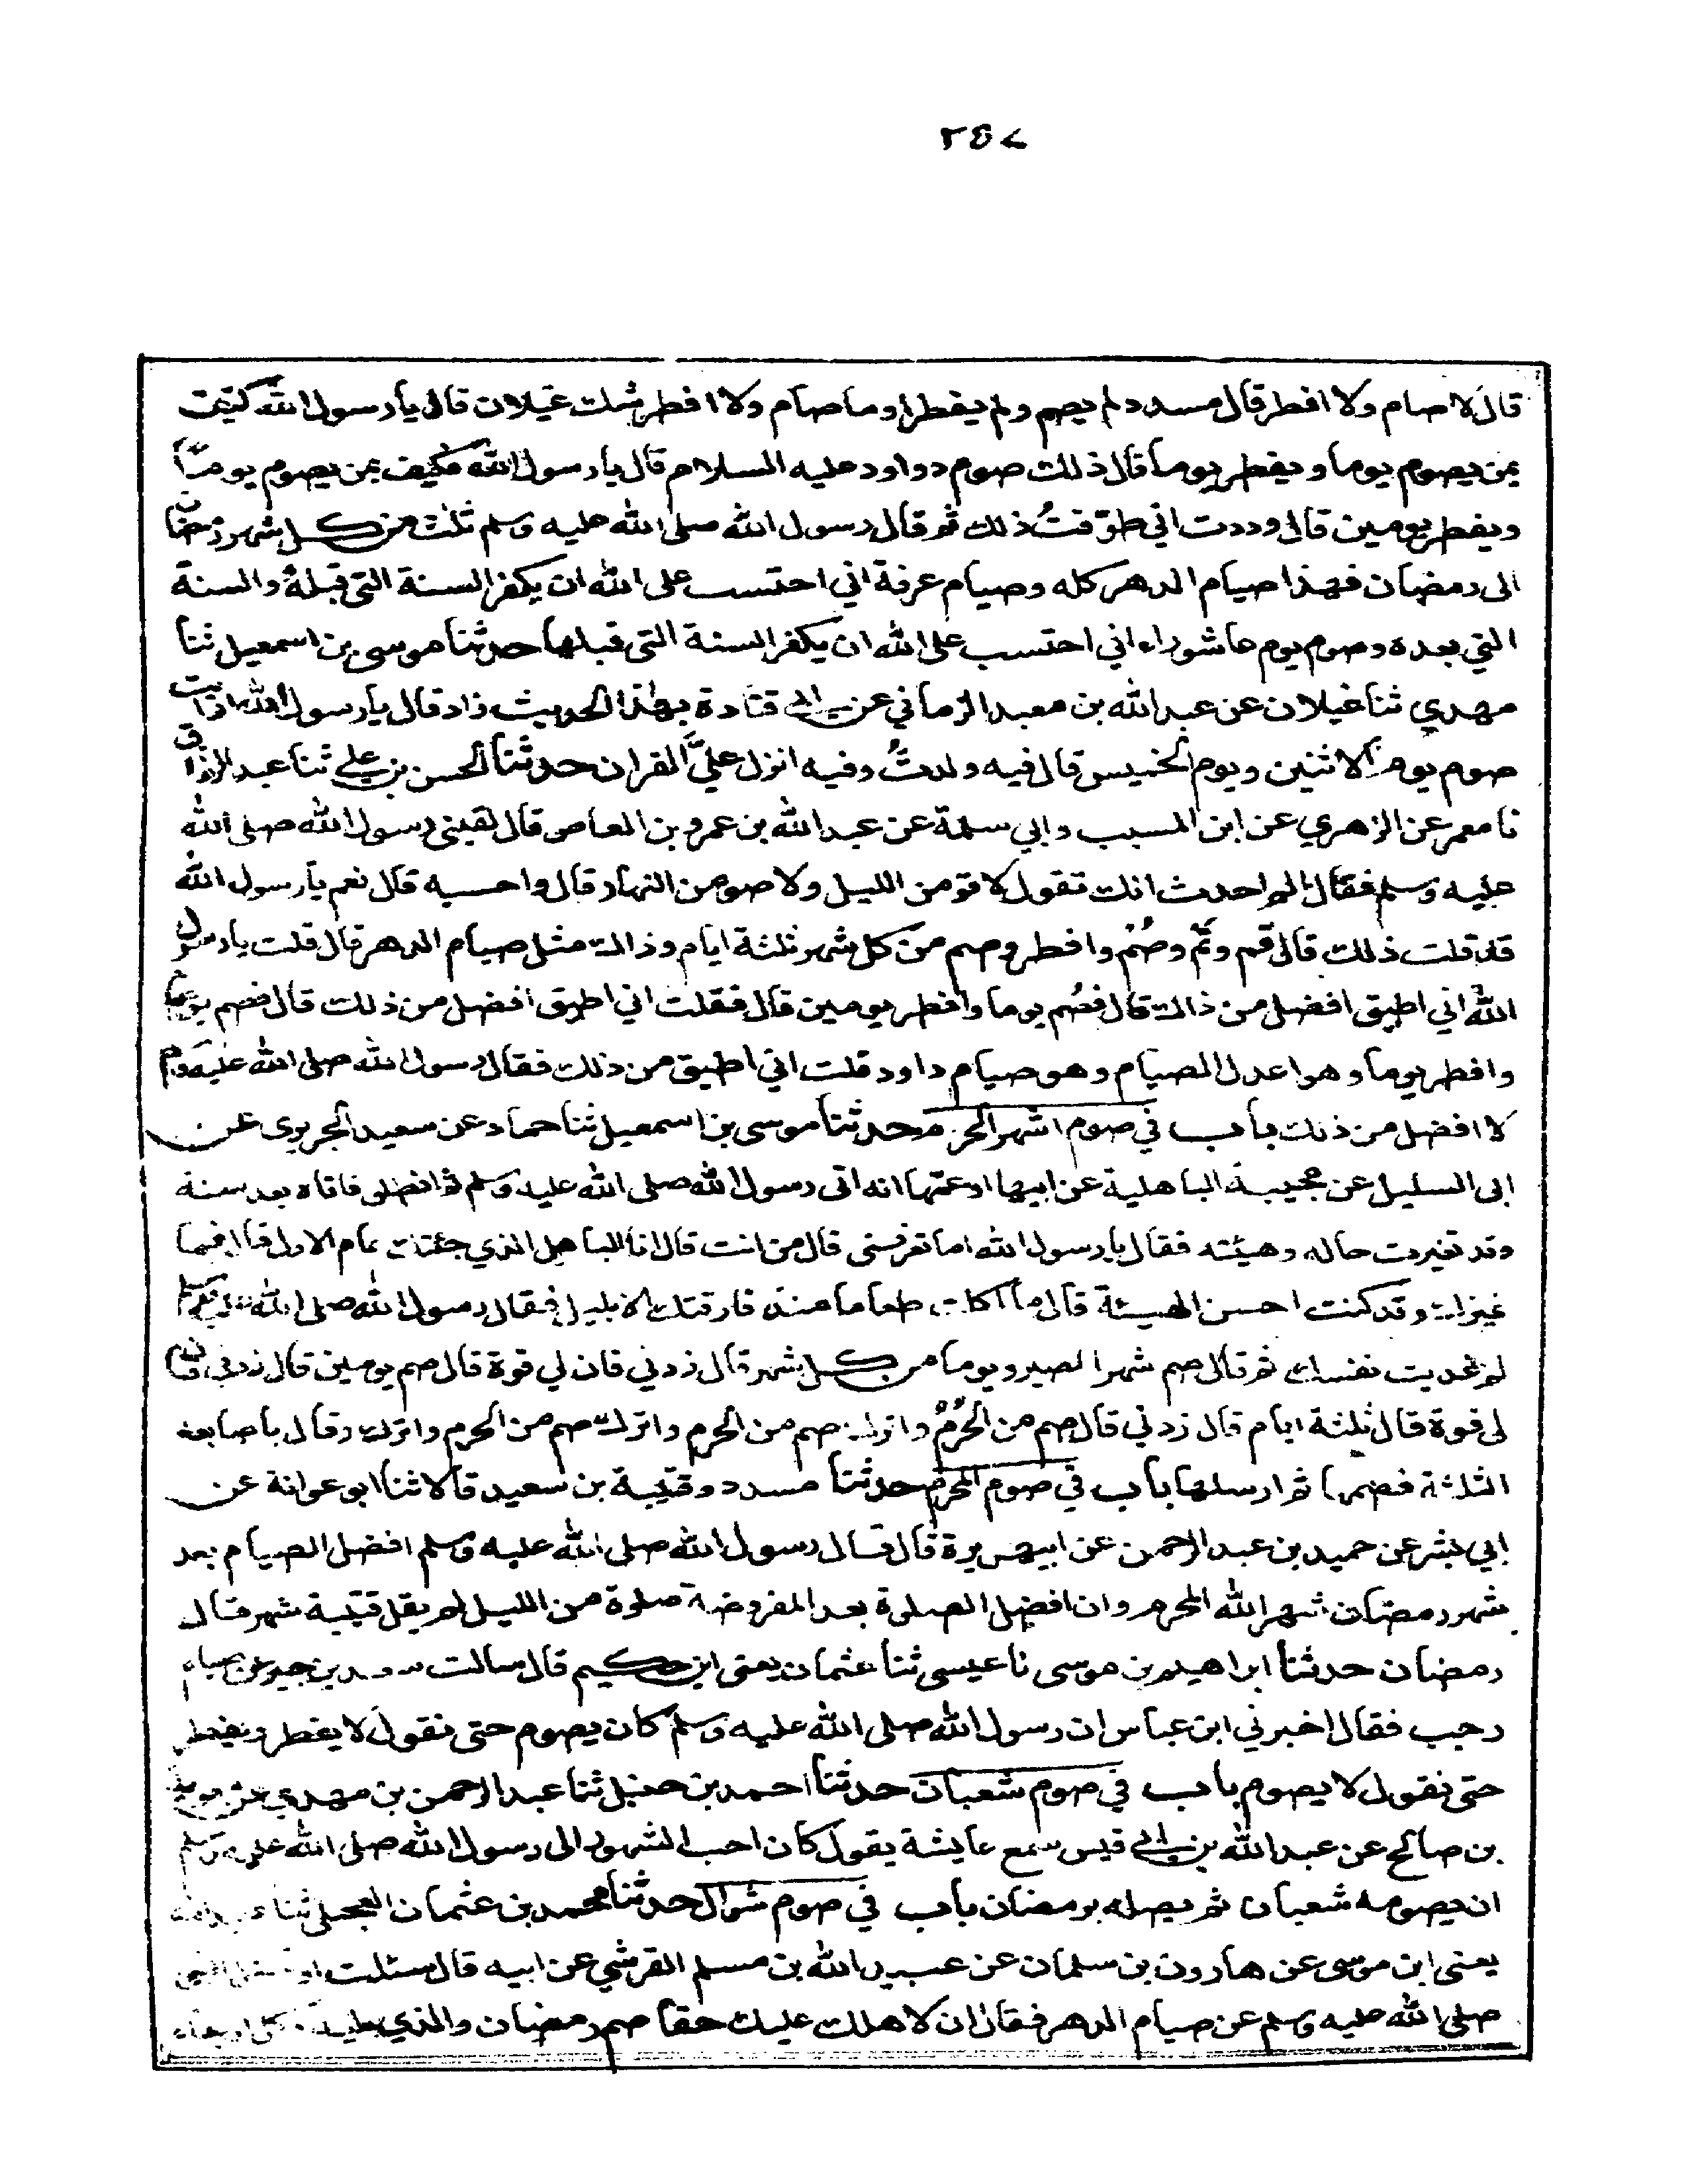 ٢٥٧
قال لا صام ولا افطر قال مسدد لم يصم ولم يفطر او ما صام ولا افطر شك غيلان قال يا رسول الله كيف
بمن يصوم يوما ويفطر يوما قال ذلك صوم دواود عليه السلام قال يا رسول الله فكيف بمن يصوم يوما
ويفطر يومين قال وددت اني طوقت ذلك ثم قال رسول الله صلى الله عليه وسلم ثلث من كل شهر رمضان
الى رمضان فهذا صيام الدهر كله وصيام عرفة اني احتسب على الله ان يكفر السنة التي قبله والسنة
التي بعده وصوم يوم عاشوراء اني احتسب على الله ان يكفر السنة التي قبلها حدثنا موسى بن اسمعيل ثنا
مهدي ثنا غيلان عن عبد الله بن معبد الزماني عن ابي قتادة بهذا الحديث زاد قال يا رسول الله ارايت
صوم يوم الاثنين ويوم الخميس قال فيه ولدت وفيه انزل علي القران حدثنا الحسن بن علي ثنا عبد الرزاق
نا معمر عن الزهري عن ابن المسيب وابي سلمة عن عبد الله بن عمرو بن العاص قال لقيني رسول الله صلى الله
عليه وسلم فقال الم احدث انك تقول لاقومن الليل ولاصومن النهار قال واحسبه قال نعم يا رسول الله
قد قلت ذلك قال قم ونم وصم وافطر وصم من كل شهر ثلثة ايام وذاك مثل صيام الدهر قال قلت يا رسول
الله اني اطيق افضل من ذاك قال فصم يوما وافطر يومين قال فقلت اني اطيق افضل من ذلك قال فصم يوما
وافطر يوما وهو اعدل الصيام وهو صيام داود قلت اني اطيق من ذلك فقال رسول الله صلى الله عليه وسلم
لا افضل من ذلك باب في صوم اشهر الحرم حدثنا موسى بن اسمعيل ثنا حماد عن سعيد الجريري عن
ابي السليل عن مجيبة الباهلية عن ابيها او عمها انه اتى رسول الله صلى الله عليه وسلم ثم انطلق فاتاه بعد سنة
وقد تغيرت حاله وهيئته فقال يا رسول الله اما تعرفني قال من انت قال انا الباهلي الذي جئتك عام الاول قال فما
غيرك وقد كنت احسن الهيئة قال ما اكلت طعاما منذ فارقتك الا بليل فقال رسول الله صلى الله عليه وسلم
لم عذبت نفسك ثم قال صم شهر الصبر ويوما من كل شهر قال زدني فان لي قوة قال صم يومين قال زدني فان
لي قوة قال ثلثة ايام قال زدني قال صم من الحرم واترك صم من الحرم واترك صم من الحرم واترك وقال باصابعه
الثلثة فضمها ثم ارسلها باب في صوم المحرم حدثنا مسدد وقتيبة بن سعيد قالا ثنا ابو عوانة عن
ابي بشر عن حميد بن عبد الرحمن عن ابي هريرة قال قال رسول الله صلى الله عليه وسلم افضل الصيام بعد
شهر رمضان شهر الله المحرم وان افضل الصلوة بعد المفروضة صلوة من الليل لم يقل قتيبة شهر قال
رمضان حدثنا ابراهيم بن موسى نا عيسى ثنا عثمان يعني ابن حكيم قال سالت سعيد بن جبير عن صيام
رجب فقال اخبرني ابن عباس ان رسول الله صلى الله عليه وسلم كان يصوم حتى نقول لا يفطر ويفطر
حتى نقول لا يصوم باب في صوم شعبان حدثنا احمد بن حنبل ثنا عبد الرحمن بن مهدي عن معوية
بن صالح عن عبد الله بن ابي قيس سمع عايشة يقول كان احب الشهور الى رسول الله صلى الله عليه وسلم
ان يصومه شعبان ثم يصله برمضان باب في صوم شوال حدثنا محمد بن عثمان العجلي ثنا
يعني ابن موسى عن هارون بن سلمان عن عبيد الله بن مسلم القرشي عن ابيه قال سئلت او سئل النبي
صلى الله عليه وسلم عن صيام الدهر فقال ان لاهلك عليك حقا صم رمضان والذي يليه وكل اربعاء